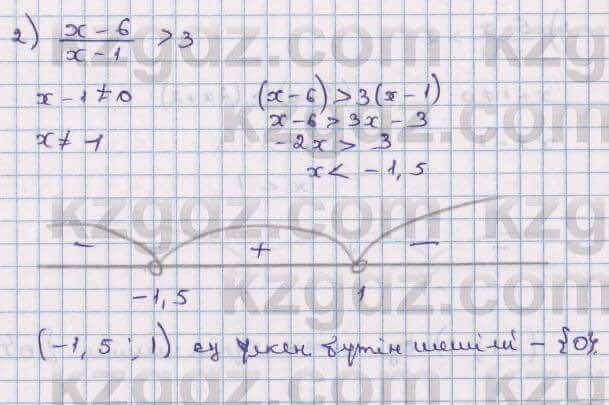 2) (x - 6)/(x - 1) > 3
x - 1 ≠ 0 (x - 6) > 3(x - 1)
x ≠ 1 x - 6 > 3x - 3
-2x > 3
x < -1,5
- + -
-1,5 1
(-1,5 ; 1) ең үлкен бүтін шешімі - {0}.
kzgdz.com